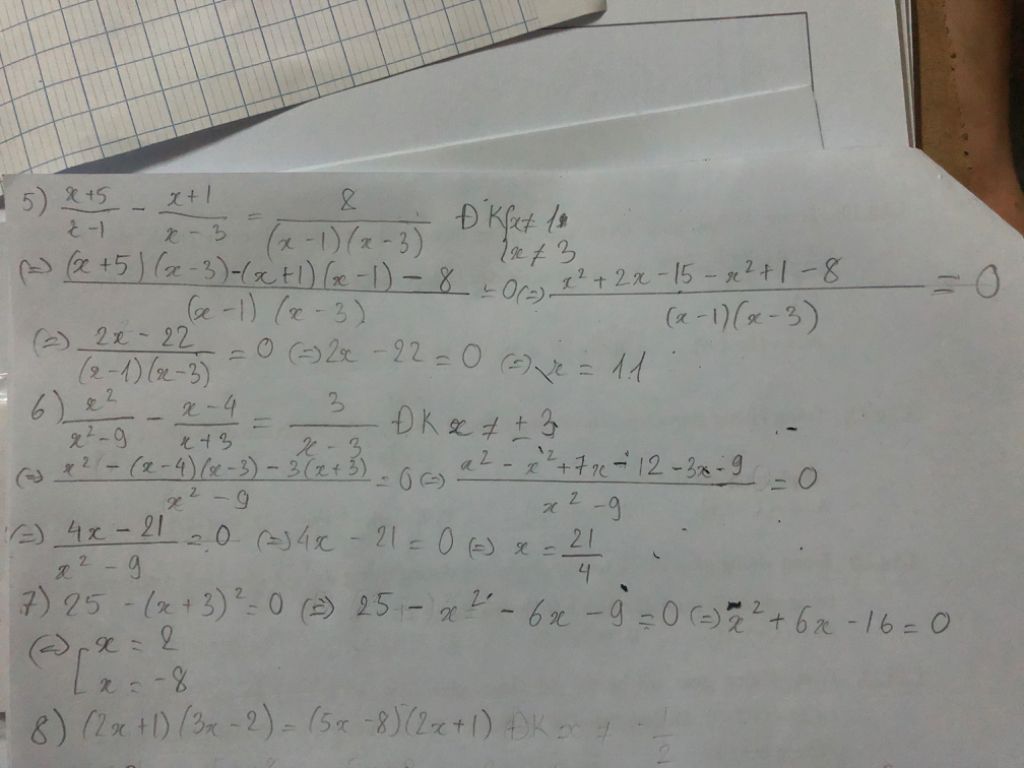 5) (x+5)/(x-1) - (x+1)/(x-3) = 8/((x-1)(x-3)) ĐK { x ≠ 1 ; x ≠ 3
(=) ((x+5)(x-3)-(x+1)(x-1)-8)/((x-1)(x-3)) = 0 (=) (x²+2x-15-x²+1-8)/((x-1)(x-3)) = 0
(=) (2x-22)/((x-1)(x-3)) = 0 (=) 2x-22 = 0 (=) x = 11
6) x²/(x²-9) - (x-4)/(x+3) = 3/(x-3) ĐK x ≠ ±3
(=) (x²-(x-4)(x-3)-3(x+3))/(x²-9) = 0 (=) (x²-x²+7x-12-3x-9)/(x²-9) = 0
(=) (4x-21)/(x²-9) = 0 (=) 4x-21 = 0 (=) x = 21/4
7) 25-(x+3)² = 0 (=) 25-x²-6x-9 = 0 (=) x²+6x-16 = 0
(=) [ x = 2
x = -8
8) (2x+1)(3x-2) = (5x-8)(2x+1) ĐK x ≠ -1/2